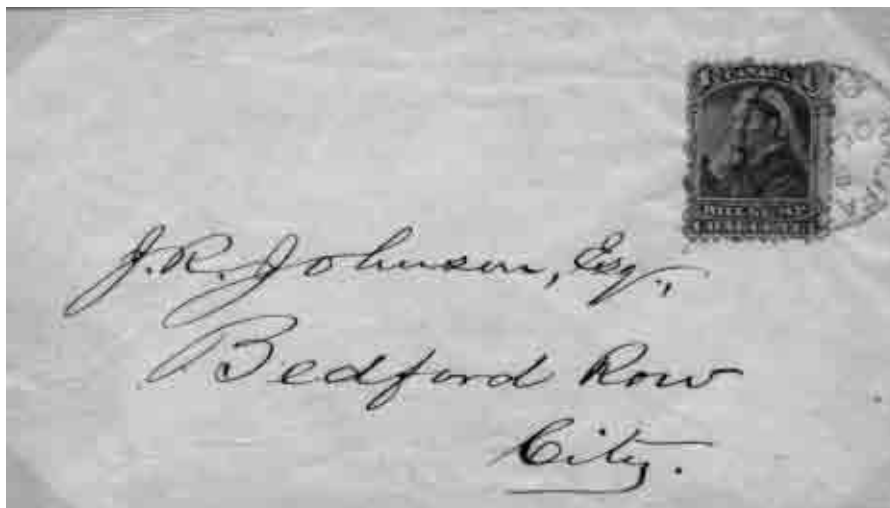 CANADA
J. R. Johnson, Esq.,
Bedford Row
City.